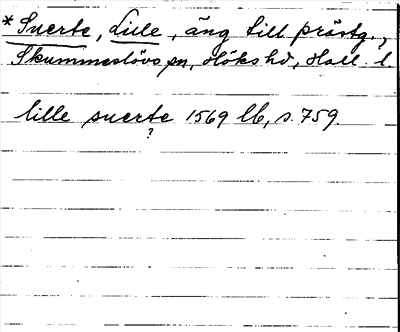 * Suerte, Lille, äng till prästg.,
Skummeslövs sn, Höks hd, Hall. l
lille suerte 1569 lb, s. 759.
?